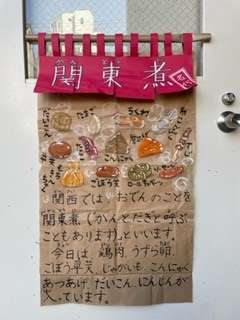 関東煮
だいこん
たまご
ちくわ
ごぼう天
ロールキャベツ
関西では、おでんのことを
関東煮(かんとだきと呼ぶ
こともあります)といいます。
今日は鶏肉、うずら卵、
ごぼう天、じゃがいも、こんにゃく
あつあげ、だいこん、にんじんが
入っています。